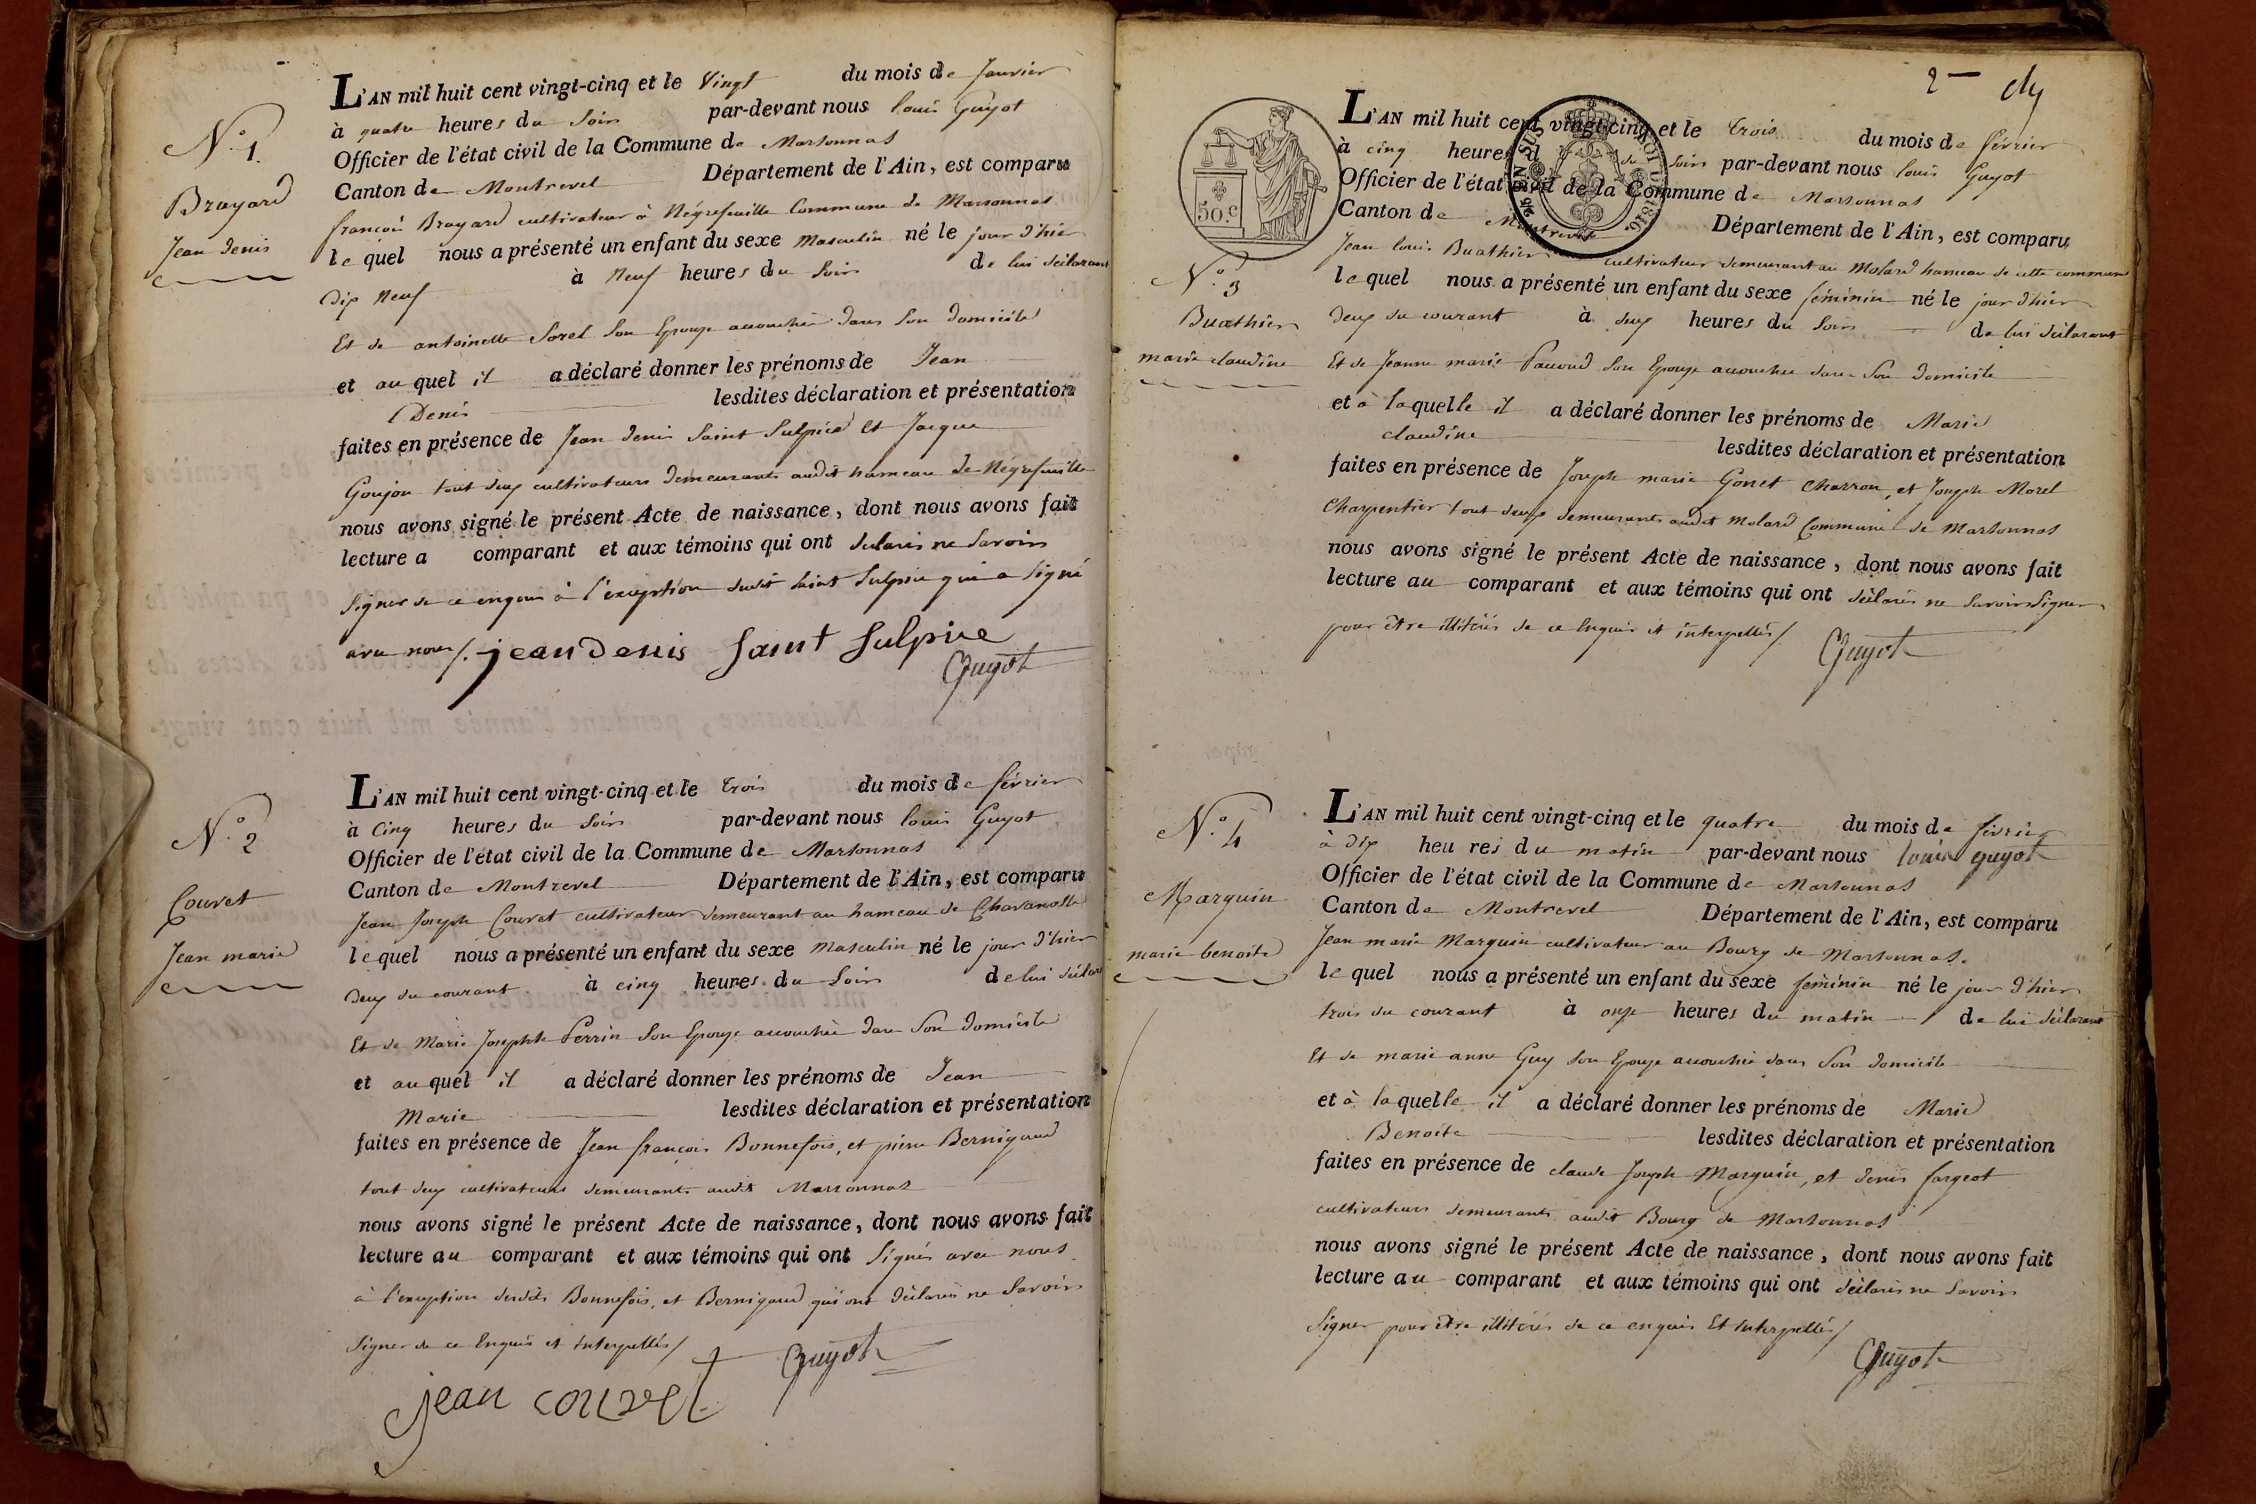 N.o 1.
Brayard
Jean Denis
L'AN mil huit cent vingt-cinq et le Vingt du mois de Janvier
à quatre heures du Soir par-devant nous louis Guyot
Officier de l'état civil de la Commune de Marsonnas
Canton de Montrevel Département de l'Ain, est comparu
françois Brayard cultivateur à Négrefeuille Commune de Marsonnas
lequel nous a présenté un enfant du sexe Masculin né le jour d'hier
Dix Neuf à Neuf heures du Soir de lui déclarant
Et de antoinette Sorel Son Epouse accouchée dans Son domicile
et auquel il a déclaré donner les prénoms de Jean
Denis lesdites déclaration et présentation
faites en présence de Jean denis Saint Sulpice et Jacque
Goujon tout deux cultivateurs demeurants audit hameau de Négrefeuille
nous avons signé le présent Acte de naissance, dont nous avons fait
lecture a comparant et aux témoins qui ont declarés ne Savoir
Signer de ce enquis à l'exception dudit Saint Sulpice qui a Signé
avec nous/.
jean Denis Saint Sulpice
Guyot
N.o 2
Couvet
Jean marie
L'AN mil huit cent vingt-cinq et le trois du mois de février
à Cinq heures du Soir par-devant nous louis Guyot
Officier de l'état civil de la Commune de Marsonnas
Canton de Montrevel Département de l'Ain, est comparu
Jean Joseph Couvet cultivateur demeurant au hameau de Chavanosse
lequel nous a présenté un enfant du sexe Masculin né le jour d'hier
Deux du courant à cinq heures du Soir de lui déclar
Et de Marie Josephte Perrin Son Epouse accouchée dans Son domicile
et auquel il a déclaré donner les prénoms de Jean
Marie lesdites déclaration et présentation
faites en présence de Jean françois Bonnefois, et pierre Bernigaud
tout deux cultivateurs demeurants audit Marsonnas
nous avons signé le présent Acte de naissance, dont nous avons fait
lecture au comparant et aux témoins qui ont Signés avec nous
à l'exception desdits Bonnefois, et Bernigaud qui ont déclarés ne Savoir
Signer de ce Enquis et interpellés/
Guyot
jean couvet
2
50.c
ROI DE
1816
N.o 3
Buathier
marie claudine
L'AN mil huit cent vingt-cinq et le trois du mois de février
à cinq heures du Soir par-devant nous louis Guyot
Officier de l'état civil de la Commune de Marsonnas
Canton de Montrevel Département de l'Ain, est comparu
Jean louis Buathier cultivateur demeurant au Molard hameau de cette commune
lequel nous a présenté un enfant du sexe féminin né le jour d'hier
deux du courant à deux heures du Soir de lui déclarant
Et de Jeanne marie Pauoud Son Epouse accouchée dans Son domicile
et à laquelle il a déclaré donner les prénoms de Marie
claudine lesdites déclaration et présentation
faites en présence de Joseph marie Gonet charron, et Joseph Morel
Charpentier tout deux demeurants audit Molard Commune de Marsonnas
nous avons signé le présent Acte de naissance, dont nous avons fait
lecture au comparant et aux témoins qui ont déclarés ne Savoir Signer
pour être illitérés de ce Enquis et interpellés/
Guyot
N.o 4
Marguin
marie benoite
L'AN mil huit cent vingt-cinq et le quatre du mois de février
à dix heures du matin par-devant nous louis guyot
Officier de l'état civil de la Commune de Marsonnas
Canton de Montrevel Département de l'Ain, est comparu
Jean marie Marguin cultivateur au Bourg de Marsonnas.
lequel nous a présenté un enfant du sexe féminin né le jour d'hier
trois du courant à onze heures du matin de lui déclarant
Et de marie anne Guy Son Epouse accouchée dans Son domicile
et à laquelle il a déclaré donner les prénoms de Marie
Benoite lesdites déclaration et présentation
faites en présence de claude Joseph Marguin, et denis fargeot
cultivateurs demeurants audit Bourg de Marsonnas
nous avons signé le présent Acte de naissance, dont nous avons fait
lecture au comparant et aux témoins qui ont déclarés ne Savoir
Signer pour être illitérés de ce enquis Et Interpellés/
Guyot